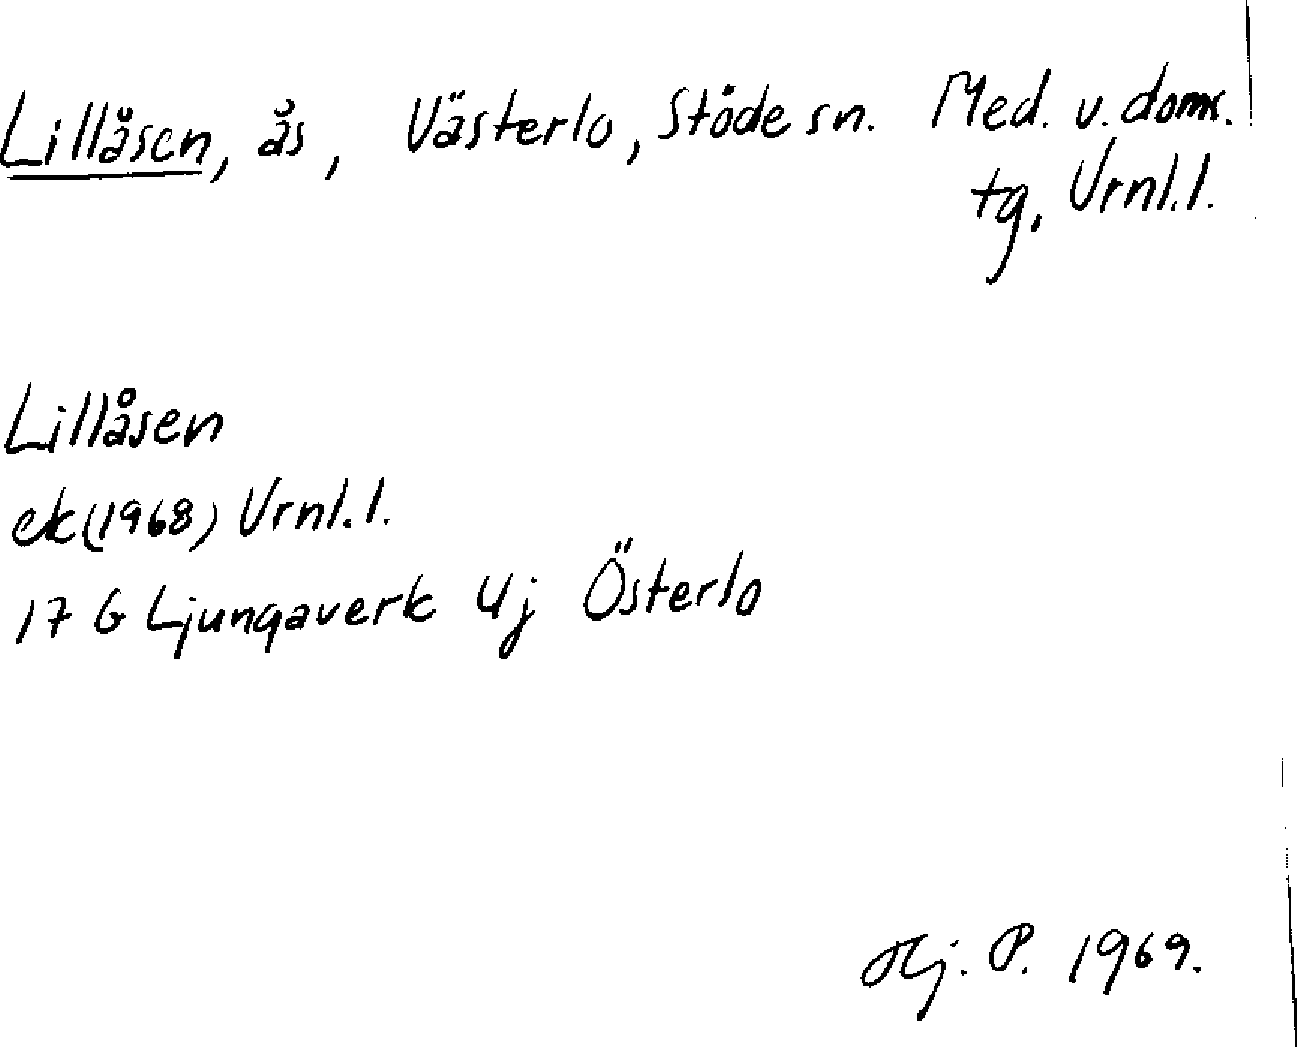 Lillåsen, ås, Västerlo, Stöde sn. Med. v. doms.
tg, Vrnl. l.
Lillåsen
ek (1968) Vrnl. l.
17 G Ljungaverk 4j Österlo
Hj. P. 1969.